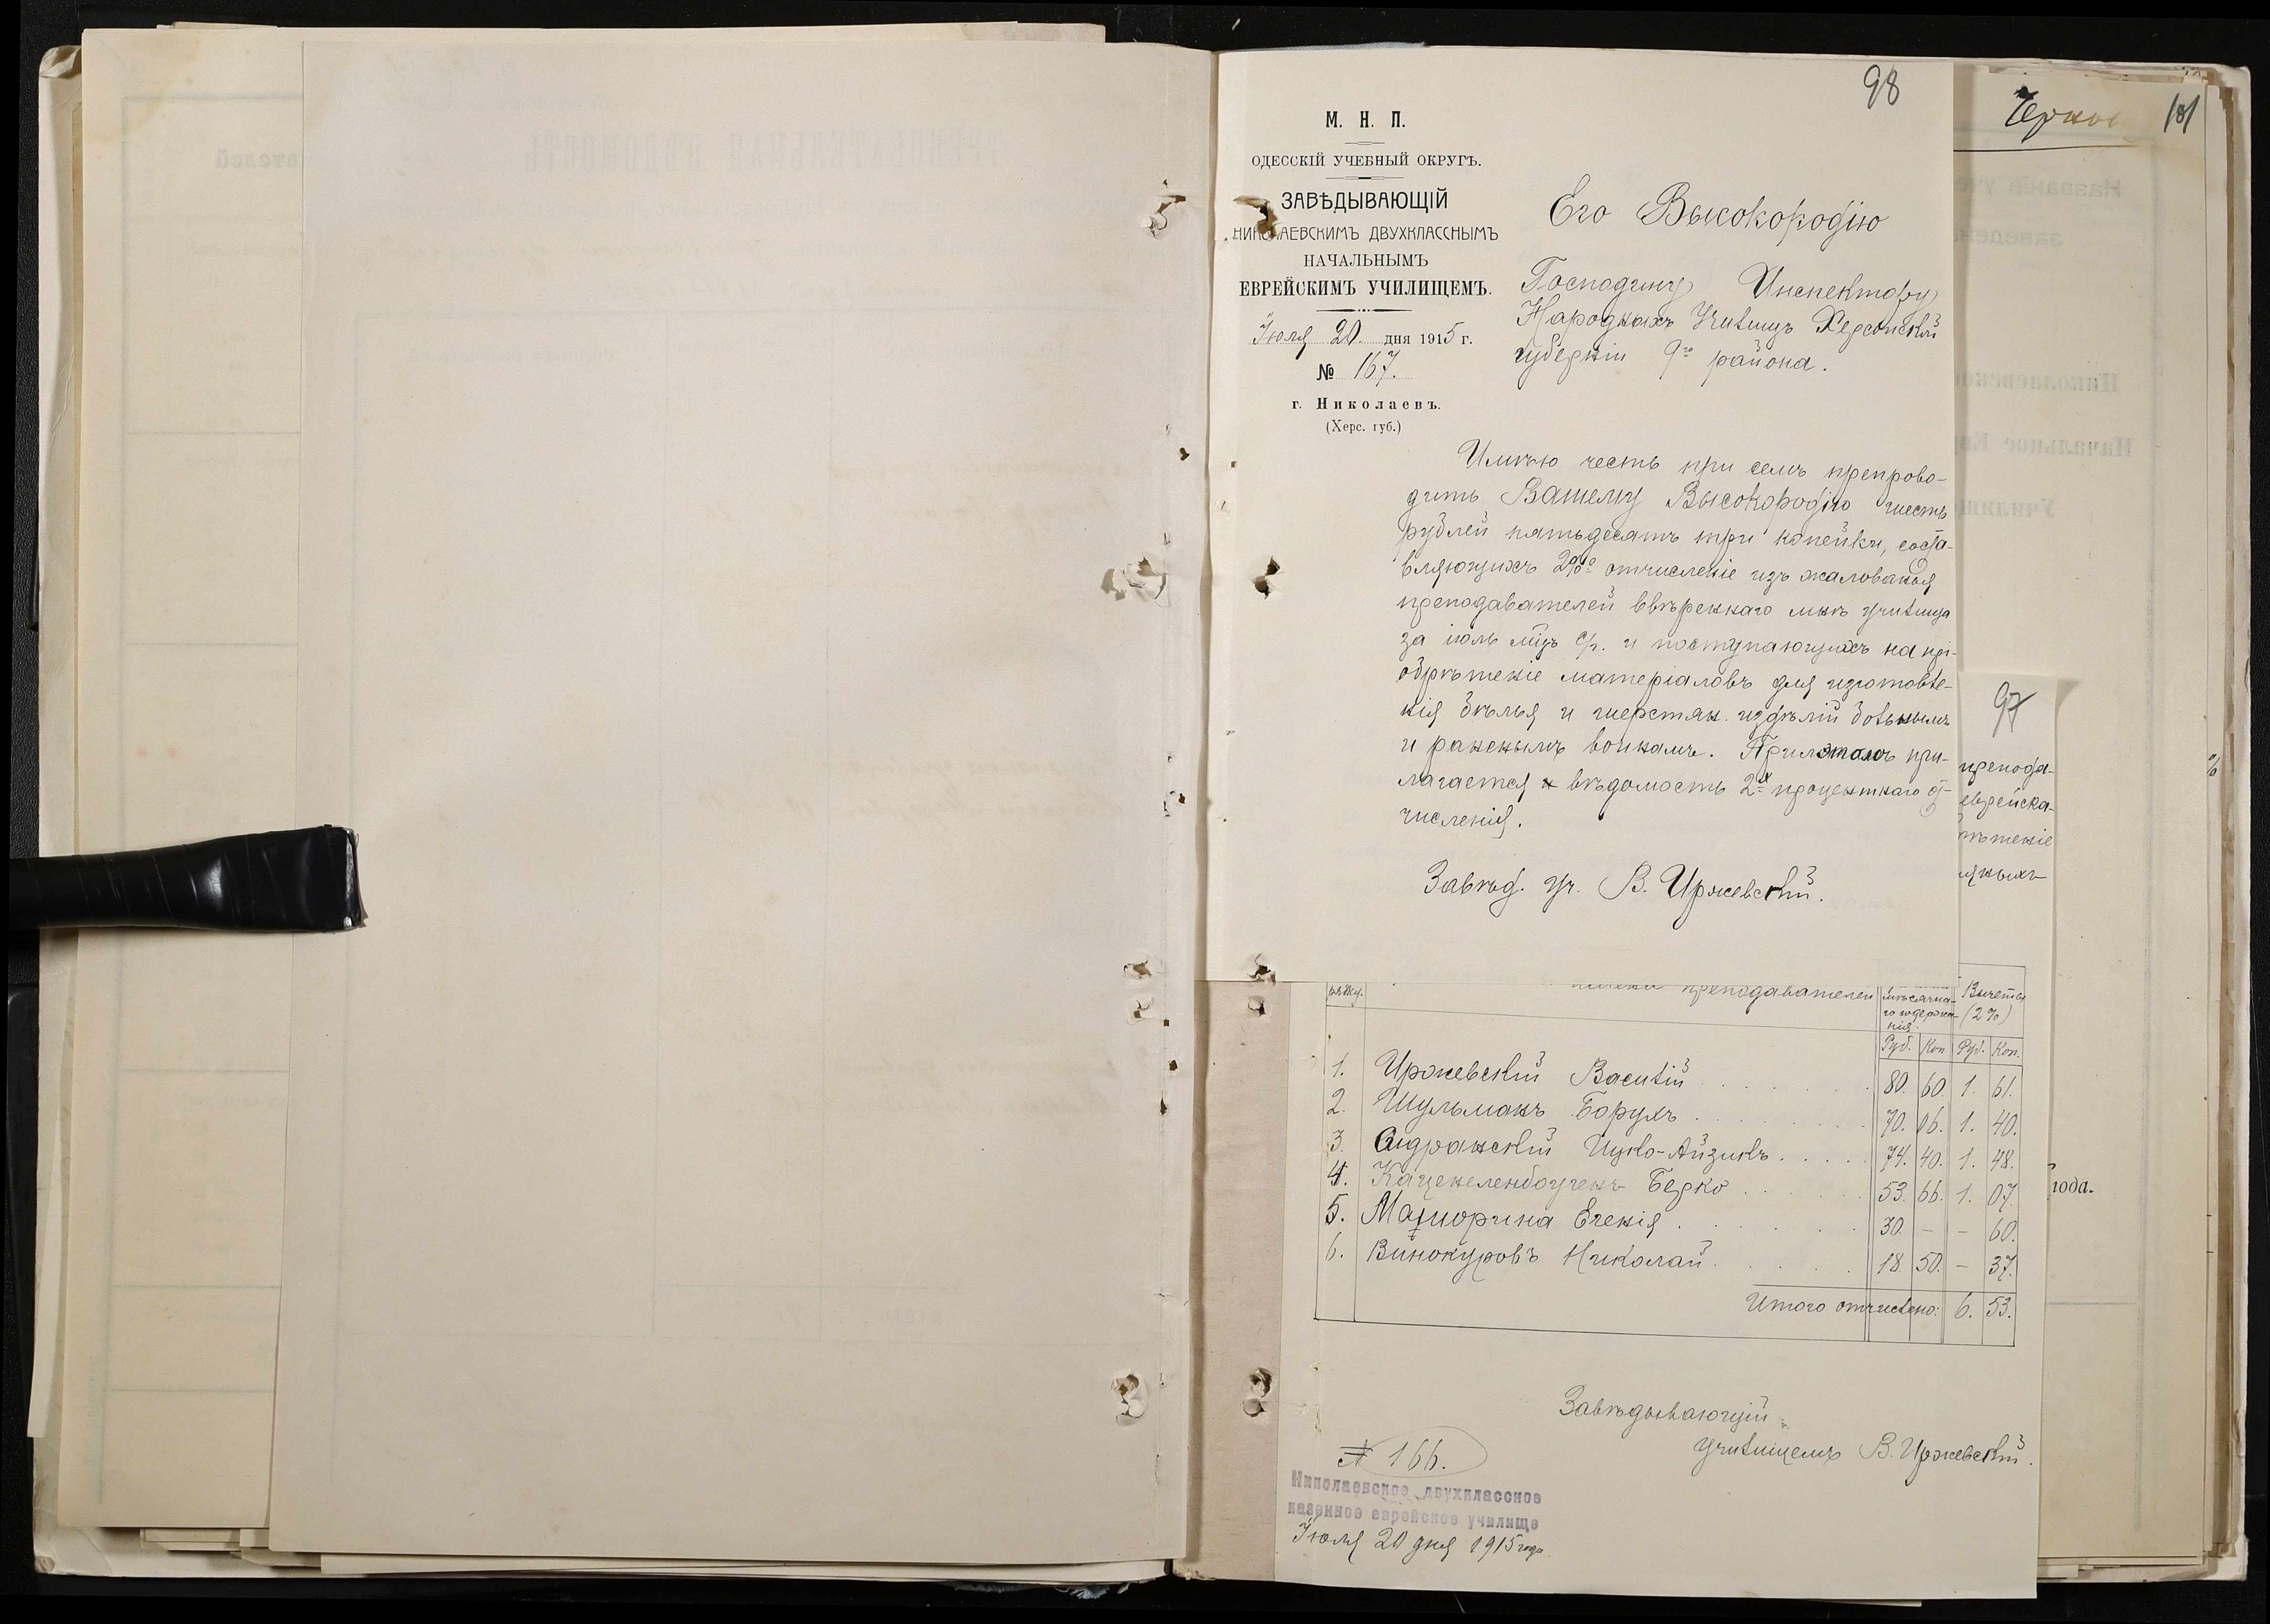 98
М. Н. П.
ОДЕССКІЙ УЧЕБНЫЙ ОКРУГЪ.
ЗАВѢДЫВАЮЩІЙ
НИКОЛАЕВСКИМЪ ДВУХКЛАССНЫМЪ
НАЧАЛЬНЫМЪ
ЕВРЕЙСКИМЪ УЧИЛИЩЕМЪ.
Іюля 20. дня 1915 г.
№ 167.
г. Николаевъ.
(Херс. губ.)
Его Высокородію
Господину Инспектору
Народныхъ Училищъ Херсонской
губерніи 9го района.
Имѣю честь при семъ препрово-
дить Вашему Высокородію шесть
рублей пятьдесятъ три копейки, соста-
вляющихъ 2%о отчисленіе изъ жалованья
преподавателей ввѣреннаго мнѣ училища
за іюль мцъ с/г. и поступающихъ на прі-
обрѣтеніе матеріаловъ для изготовле-
нія бѣлья и шерстян. издѣлій больнымъ
и раненымъ воинамъ. При этомъ при-
лагается вѣдомость 2х процентнаго от-
численія.
Завѣд. уч. В. Иржевскій.
Черков
181
97
препода-
еврейска-
рѣтеніе
года.
преподавателей
мѣсячна-
го содержа-
нія.
Вычеты
(2%)
Руб. Коп. Руб. Коп.
1. Иржевскій Василій 80. 60. 1. 61.
2. Шульманъ Борухъ 70. 06. 1. 40.
3. Сидранскій Ицко-Айзикъ 74. 40. 1. 48.
4. Каценеленбоугенъ Берко 53. 66. 1. 07.
5. Машорина Евгенія 30. – – 60.
6. Винокуровъ Николай 18. 50. – 37.
Итого отчислено: 6. 53.
Завѣдывающій
училищемъ В. Иржевскій.
№ 166.
Николаевское двухклассное
казенное еврейское училище
Іюля 20 дня 1915 года